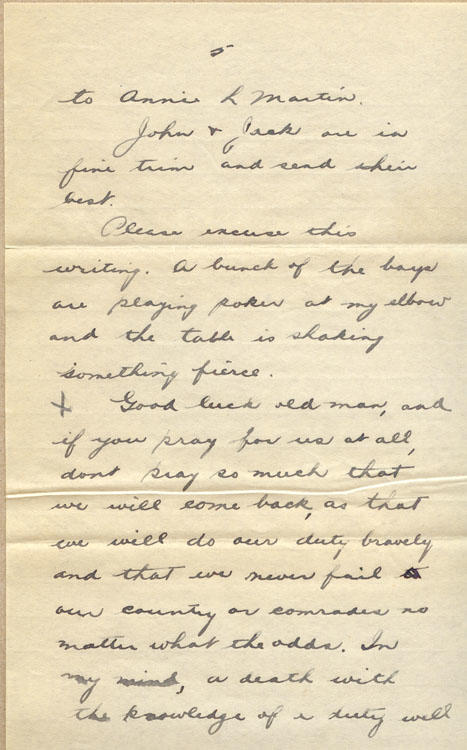 5
to Annie L Martin.
John & Jack are in
fine trim and send their
best.
Please excuse this
writing. A bunch of the boys
are playing poker at my elbow
and the table is shaking
something fierce.
+ Good luck old man, and
if you pray for us at all,
dont pray so much that
we will come back, as that
we will do our duty bravely
and that we never fail to
our country or comrades no
matter what the odds. In
my mind, a death with
the knowledge of a duty well